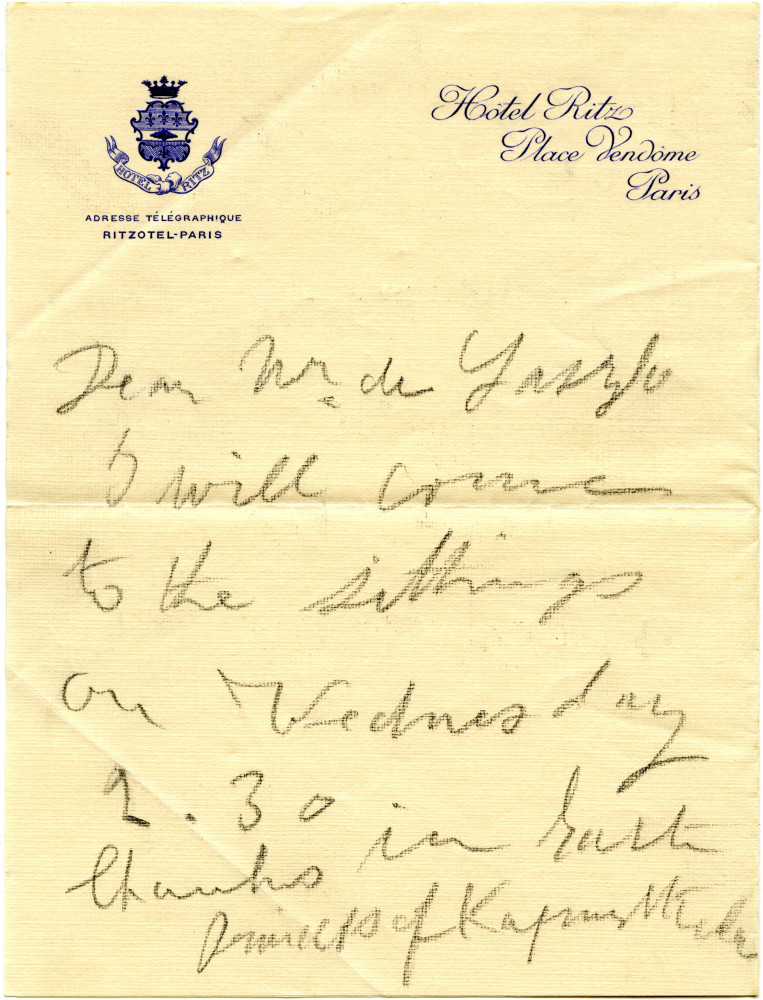 HOTEL RITZ
ADRESSE TÉLÉGRAPHIQUE
RITZOTEL-PARIS
Hôtel Ritz
Place Vendôme
Paris
Dear Mr. de Laszlo
I will come
to the sittings
on Wednesday
2.30 in haste
thanks
Princess of Kapurthala